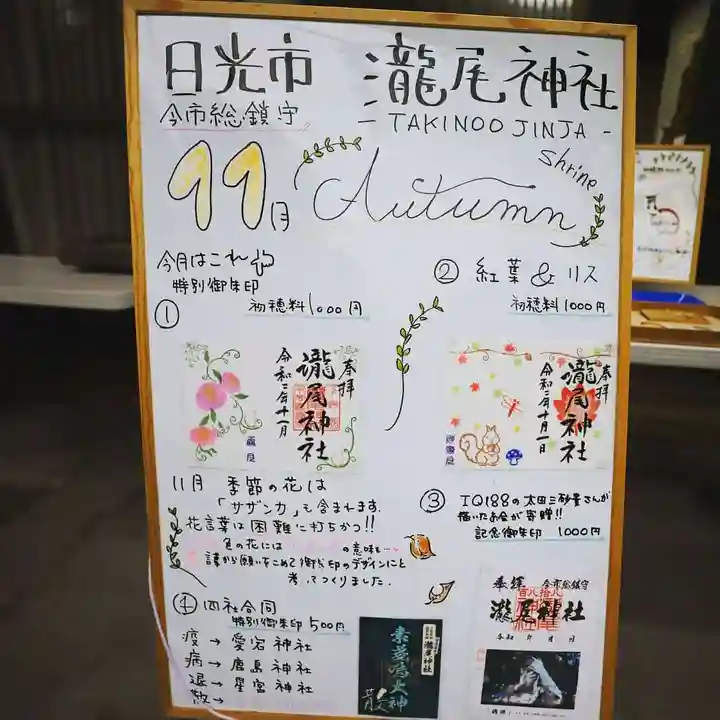 日光市 瀧尾神社
今市総鎮守
- TAKINOO JINJA -
shrine
11月 Autumn
今月はこれ
特別御朱印
① 初穂料1000円
奉拝
瀧尾神社
令和二年十一月
② 紅葉 & リス
初穂料1000円
奉拝
瀧尾神社
令和二年十一月一日
11月 季節の花は
「サザンカ」も含まれます。
花言葉は困難に打ちかつ!!
色の花には の意味も
願いをこめて御朱印のデザインにと
考えてつくりました。
③ IQ188の太田三砂貴さんが
描いたお絵が寄贈!!
記念御朱印 1000円
奉拝 今市総鎮守
瀧尾神社
令和 年 月 日
④ 四社合同
特別御朱印 500円
疫→愛宕神社
病→鹿島神社
退→星宮神社
散→
瀧尾神社
素戔嗚大神
散